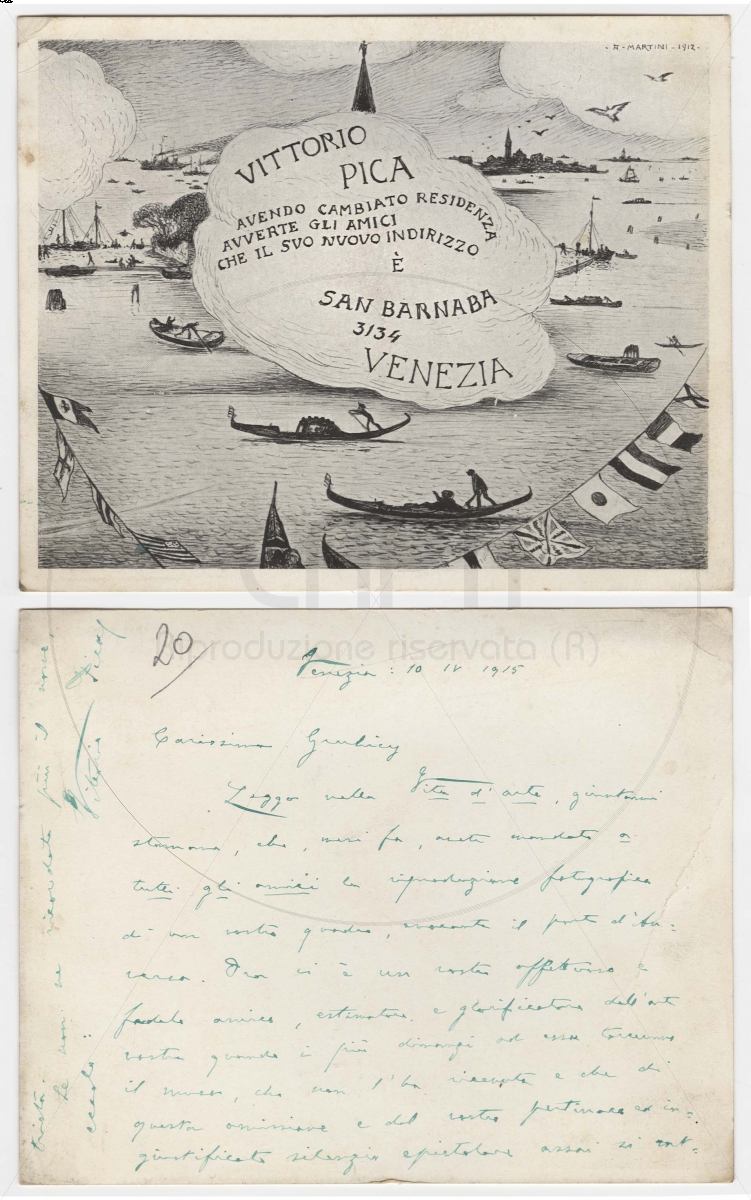 · A · MARTINI · 1912 ·
VITTORIO
PICA
AVENDO CAMBIATO RESIDENZA
AVVERTE GLI AMICI
CHE IL SVO NUOVO INDIRIZZO
È
SAN BARNABA
3134
VENEZIA
20
riproduzione riservata (R)
Venezia : 10 IV 1915
Carissimo Grubicy
Leggo nella Vita d'arte, giuntami
stamane, che, mesi fa, avete mandato a
tutti gli amici la riproduzione fotografica
di un vostro quadro, evocante il porto d'An=
versa. Ora vi è un vostro affettuoso e
fedele amico, estimatore e glorificatore dell'arte
vostra quando i più dinanzi ad essa torcevano
il muso, che non l'ha ricevuta e che di
questa omissione e del vostro pertinace ed in=
giustificato silenzio epistolare assai si rat=
trista.
Se non ve ricordate più il nome,
eccolo:
Vittorio Pica